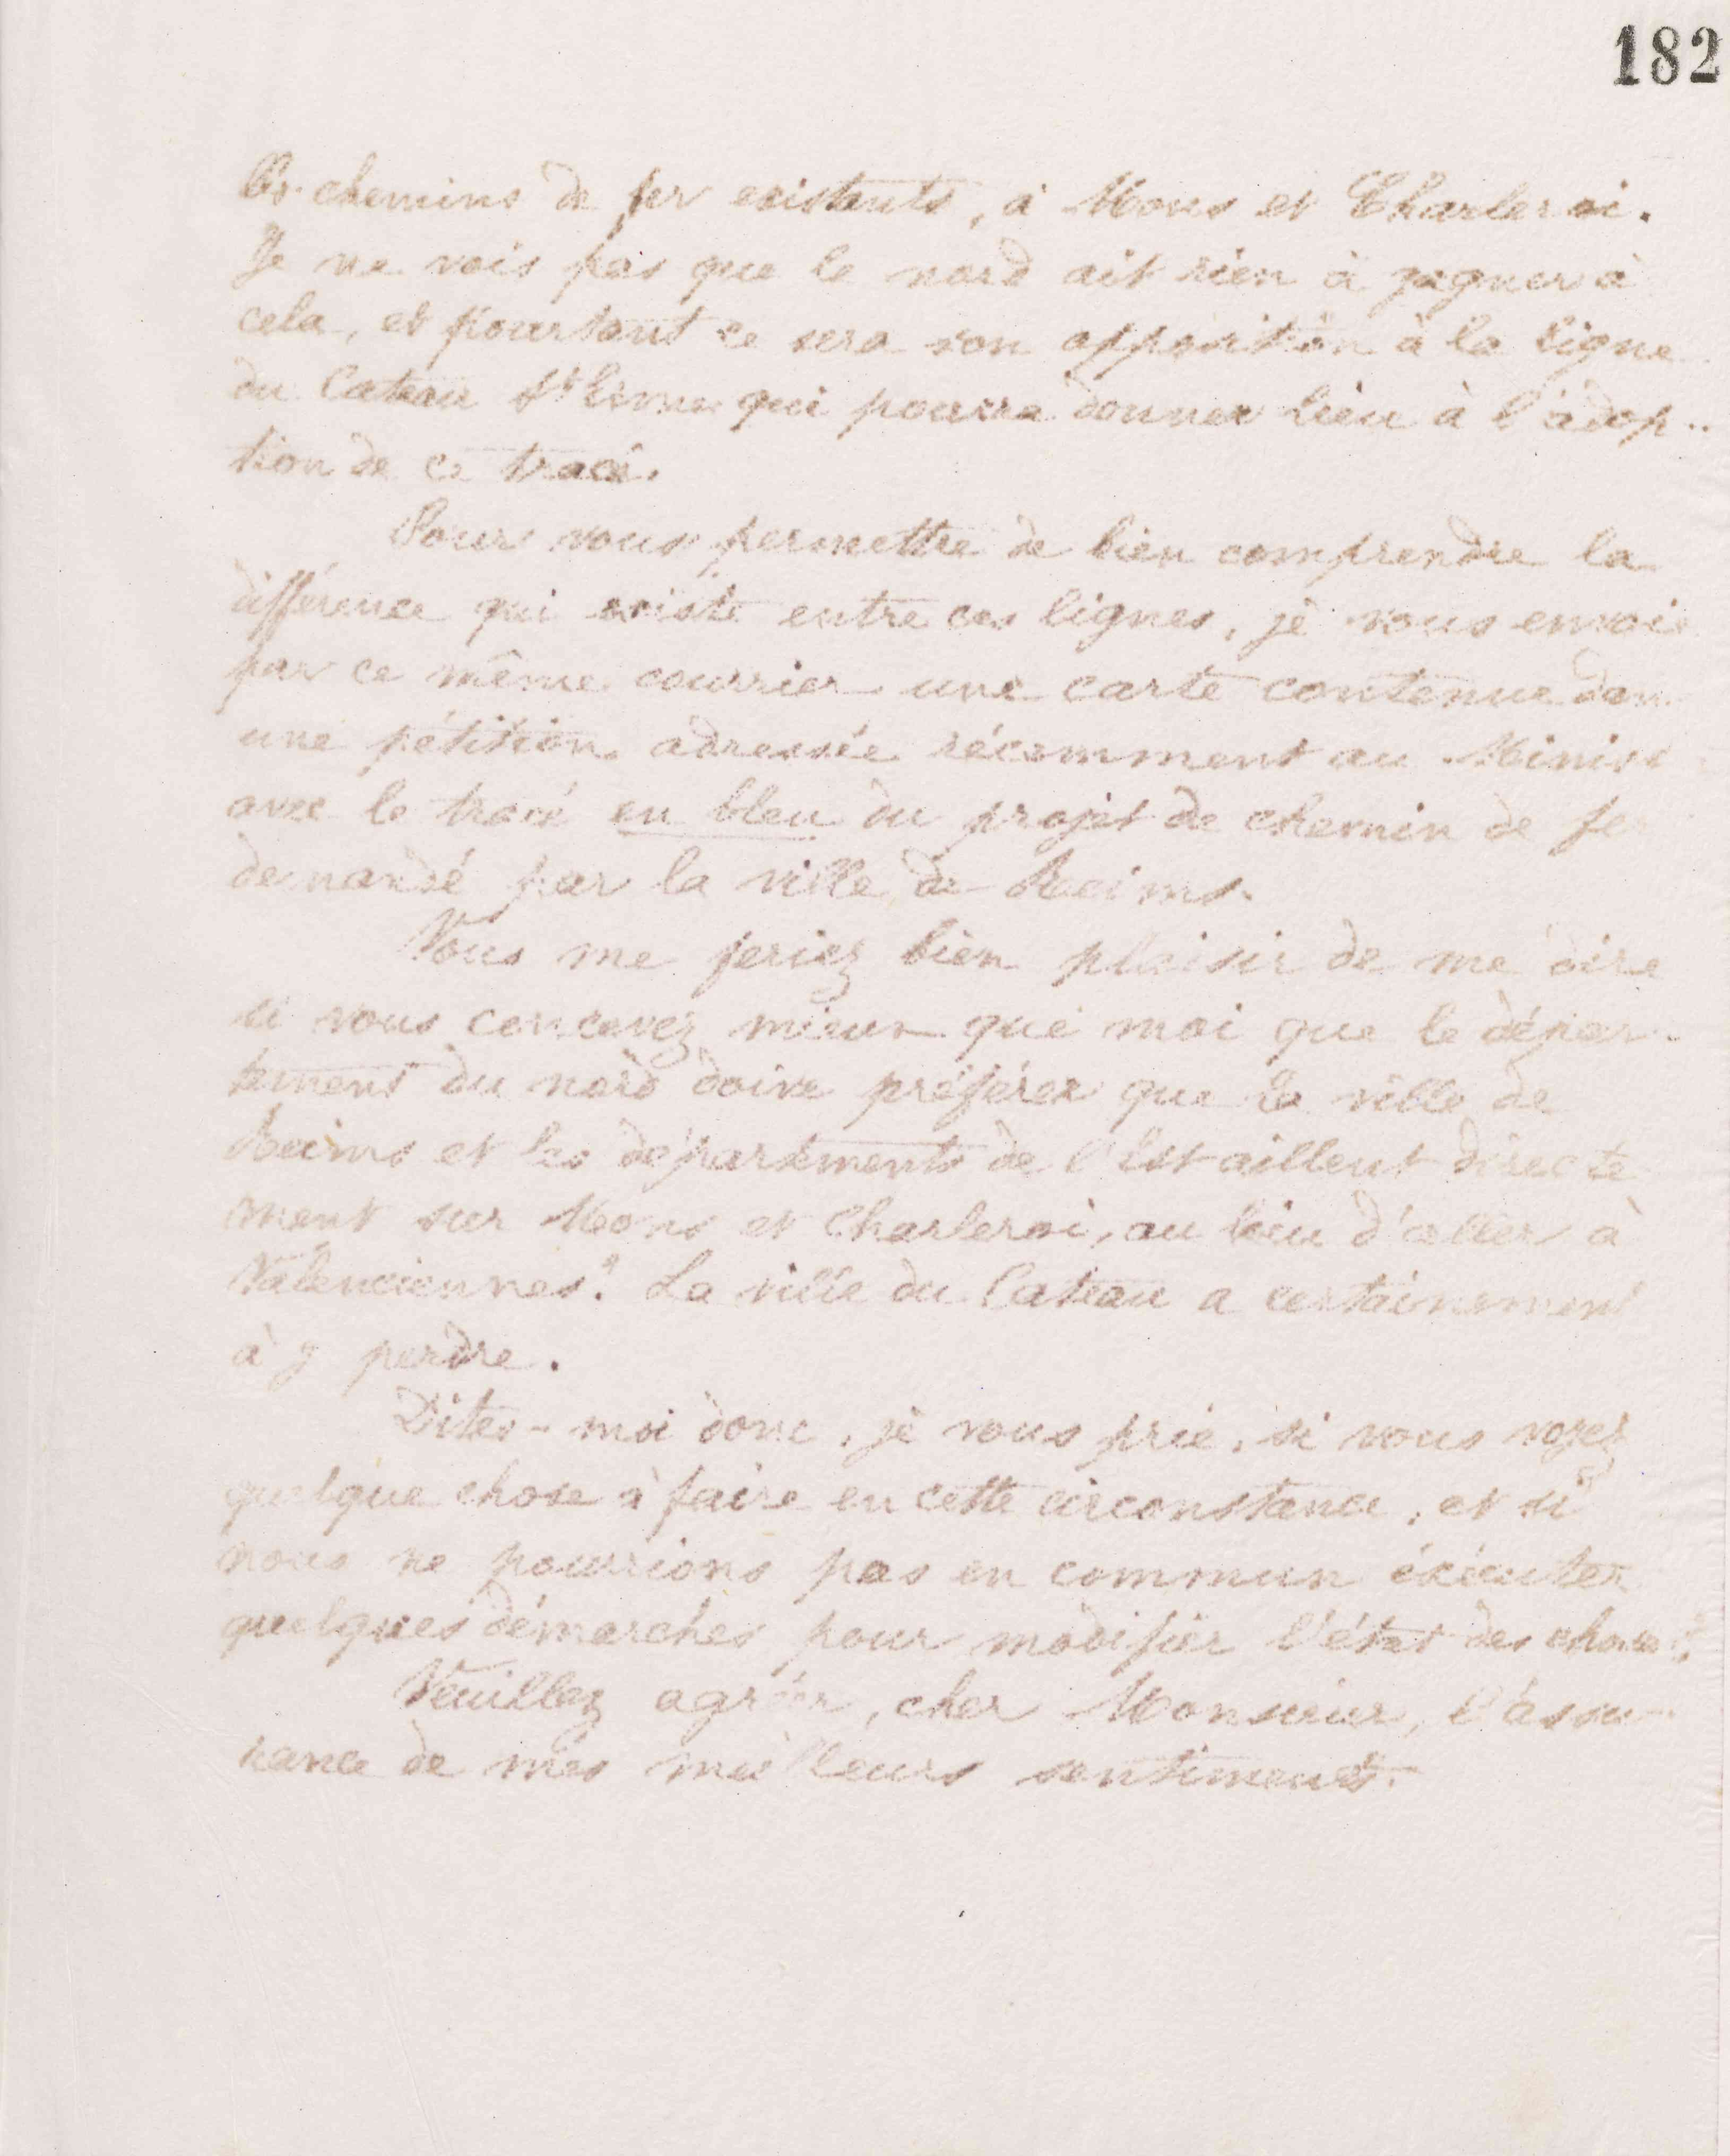 182
les chemins de fer existants, à Mons et Charleroi.
Je ne vois pas que le nord ait rien à gagner à
cela, et pourtant ce sera son opposition à la ligne
du Cateau St Erme qui pourra donner lieu à l'adop-
tion de ce tracé.
Pour vous permettre de bien comprendre la
différence qui existe entre ces lignes, je vous envoie
par ce même courrier une carte contenue dans
une pétition adressée récemment au Minist
avec le tracé en bleu du projet de chemin de fer
demandé par la ville de Reims.
Vous me feriez bien plaisir de me dire
si vous concevez mieux que moi que le dépar-
tement du nord doive préférer que la ville de
Reims et les départements de l'Est aillent directe
ment sur Mons et Charleroi, au lieu d'aller à
Valenciennes? La ville du Cateau a certainement
à y perdre.
Dites-moi donc, je vous prie, si vous voyez
quelque chose à faire en cette circonstance, et si
nous ne pourrions pas en commun exécuter
quelques démarches pour modifier l'état des choses?
Veuillez agréer, cher Monsieur, l'assu-
rance de mes meilleurs sentiments.